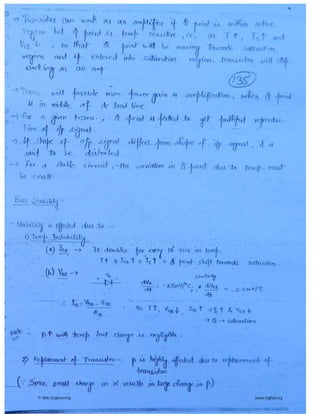 → Transistor can work as an amplifier if Q point is within active
region but Q point is temp sensitive, i.e., as T↑, Ic↑ and
VCE↓, so that Q point will be moving towards saturation
region and if entered into saturation region, transistor will stop
working as an amp.
135
→ Trans. will provide more power gain or amplification, when Q point
is in middle of dc load line.
→ For a given trans., Q point is plotted to get faithful reproduc-
tion of i/p signal.
→ If shape of o/p signal differs from shape of i/p signal, it is
said to be distorted.
→ For a stable circuit, the variation in Q-point due to temp must
be small.
Bias Stability
Stability is affected due to —
1) Temp. Instability
(a) Ico → It doubles for every 10° rise in temp.
T↑ ⇒ Ico↑ ⇒ Ic↑ ⇒ Q point shift towards saturation
(b) VBE →
similarly
= -2.5 mV/°C,
= -2.3 mV/°C
As T↑, VBE↓ IB↑ → Ic↑ & VCE↓
→ Q → saturation
Note - β↑ with temp but change is negligible.
2) Replacement of Transistor — β is highly affected due to replacement of
transistor
(∵ Since small change in α results in large change in β)
© Wiki Engineering www.raghul.org